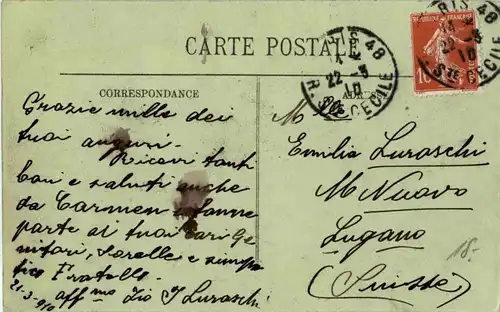 CARTE POSTALE
CORRESPONDANCE
Grazie mille dei
tuoi auguri.
Ricevi tanti
baci e saluti anche
da Carmen
parte ai tuoi cari Ge
nitori, Sorelle e simpa
tico Fratello
aff mo Zio Luraschi
21-3-910
PARIS 48
22 -3
10
R. Ste CECILE
REPUBLIQUE FRANÇAISE
10
Mlle
Emilia Luraschi
M Nuovo
Lugano
(Suisse)
15.-